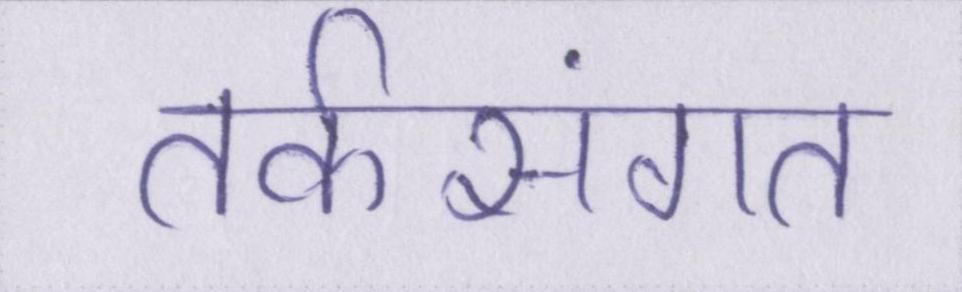 तर्कसंगत